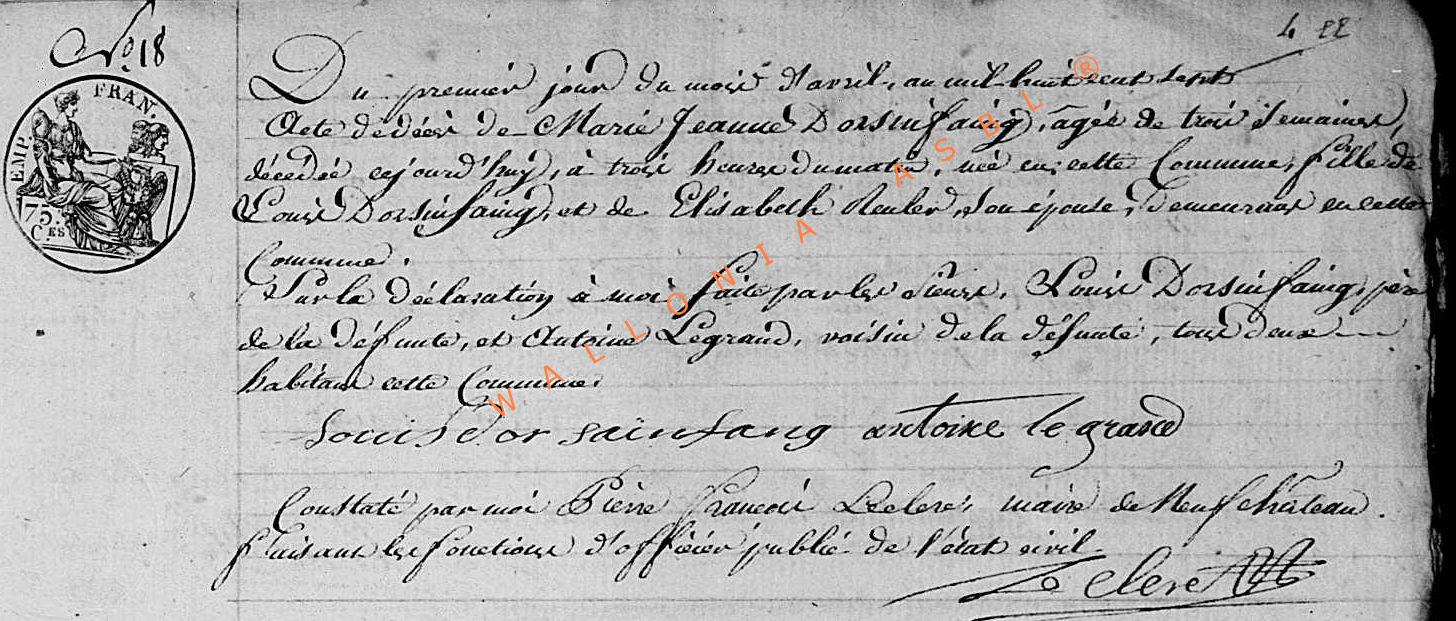 No. 18
4 22
EMP. FRAN.
75. CES
Du premier jour du mois d'avril, an mil huit cent sept
Acte de décès de Marie Jeanne Dorsinfaing, agée de trois semaines,
décédée cejourd'huy, à trois heures du matin, née en cette Commune, fille de
Louis Dorsinfaing, et de Elisabeth Reuler, son épouse, demeurans en cette
Commune.
Sur la déclaration à moi faite par les sieurs, Louis Dorsinfaing, père
de la défunte, et Antoine Legrand, voisin de la défunte, tous deux
habitans cette Commune.
Louis dorsainfang antoine le grand
Constaté par moi Pierre François Leclerc, maire de Neufchâteau.
faisant les fonctions d'officier public de l'état civil.
Le clerc
WALLONIA ASBL ®